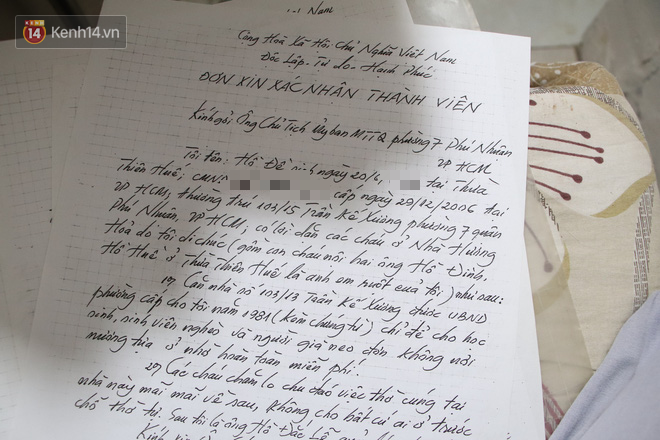 Kenh14.vn
14
Nam
Cộng Hoà Xã Hội Chủ Nghĩa Việt Nam
Độc Lập - Tự do - Hạnh Phúc
ĐƠN XIN XÁC NHẬN THÀNH VIÊN
Kính gởi, Ông Chủ Tịch Ủy ban MTTQ phường 7 Phú Nhuận
TP HCM
Tôi tên: Hồ Đề sinh ngày 20/6, tại Thừa
Thiên Huế; CMND cấp ngày 29/12/2006 tại
TP HCM, thường trú 103/15 Trần Kế Xương phường 7 quận
Phú Nhuận, TP HCM; có lời dặn các cháu ở Nhà Hương
Hoả do tôi di chúc (gồm con cháu nội hai ông Hồ Đình,
Hồ Huê ở Thừa Thiên Huế là anh em ruột của tôi) như sau:
1/ Căn nhà số 103/13 Trần Kế Xương được UBND
phường cấp cho tôi năm 1981 (kèm chứng từ) chỉ để cho học
sinh, sinh viên nghèo và người già neo đơn không nơi
nương tựa ở nhờ hoàn toàn miễn phí.
2/ Các cháu chăm lo chu đáo việc thờ cúng tại
nhà này mãi mãi về sau, không cho bất cứ ai ở trước
chỗ thờ tự. Sau tôi là ông Hồ Đắc
Kính xin